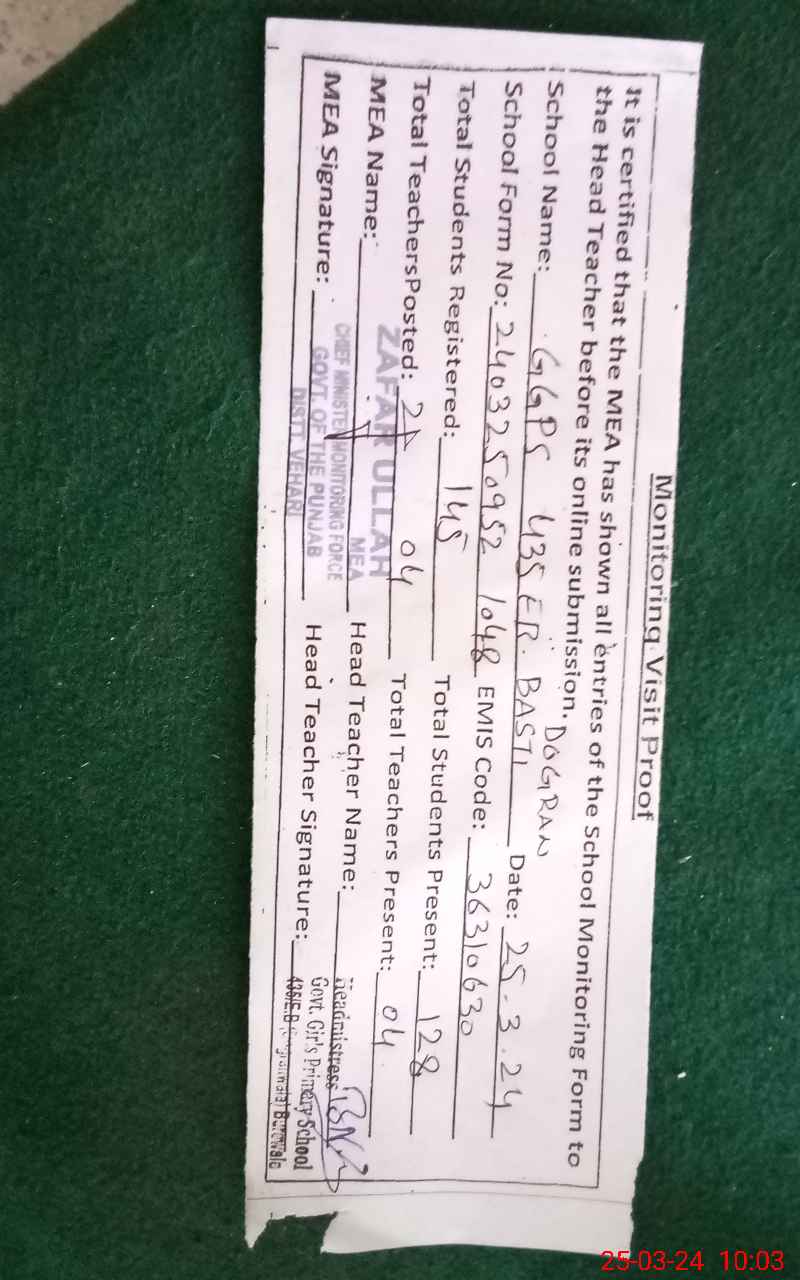 Monitoring Visit Proof
It is certified that the MEA has shown all entries of the School Monitoring Form to
the Head Teacher before its online submission.
School Name: GGPS 435 EB. BASTI DOGRAN Date: 25.3.24
School Form No: 240325 0952 1048 EMIS Code: 36310630
Total Students Registered: 145 Total Students Present: 128
Total TeachersPosted: 04 Total Teachers Present: 04
MEA Name: ZAFAR ULLAH Head Teacher Name:
MEA
CHIEF MINISTER MONITORING FORCE
MEA Signature: GOVT. OF THE PUNJAB Head Teacher Signature:
DISTT. VEHARI
Headmistress
Govt. Girl's Primary School
435/E.B Burewala
25-03-24 10:03